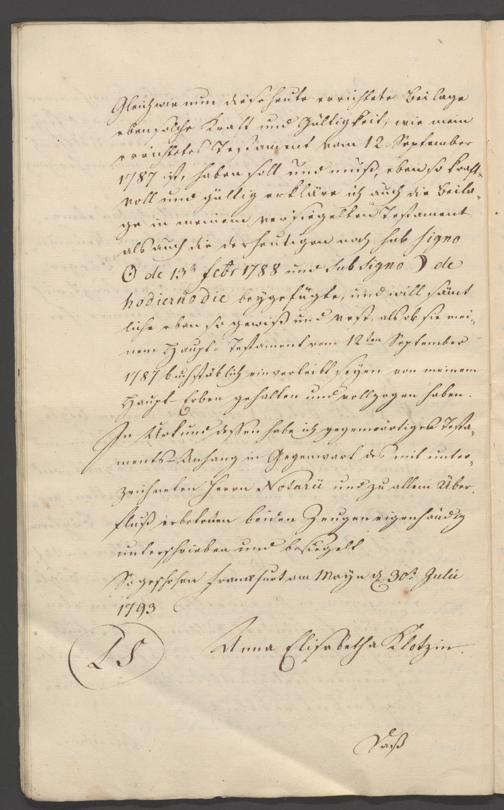 Gleichwie nun diese heute errichtete Beilage
eben solche Kraft und Gültigkeit, wie mein
errichtetes Testament vom 12. September
1787 ist, haben soll und muß, eben so kraft-
voll und gültig erkläre ich auch die Beila-
ge in meinem versiegelten Testament
als auch die der heutigen noch sub signo
☉ de 13t. febr 1788 und sub signo ☽ de
hodierno die beygefügte, und will sämt-
liche eben so gewiß und vest, als ob sie mei-
nem Haupt-Testament vom 12ten September
1787 buchstäblich einverleibt seyen von meinem
Haupt-Erben gehalten und vollzogen haben.
In Urkund dessen habe ich gegenwärtigen Testa-
ments-Anhang in Gegenwart des mit unter-
zeichneten Herrn Notarii und zu allem Über-
fluß erbetenen beiden Zeugen eigenhändig
unterschrieben und besiegelt
So geschehen Franckfurt am Mayn d. 30t. Julii
1793
LS Anna Elisabetha Klotzin.
Daß